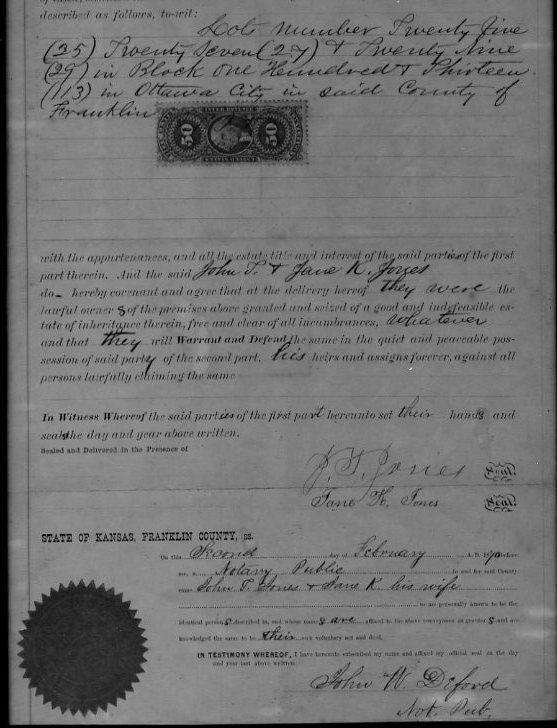 described as follows, to-wit:
Lots number Twenty five
(25) Twenty Seven (27) & Twenty Nine
(29) in Block One Hundred & Thirteen
(113) in Ottawa City, in said County of
Franklin
50 50
INTER. REVENUE
with the appurtenances, and all the estate title and interest of the said parties of the first
part therein. And the said John T. & Jane K. Jones
do hereby covenant and agree that at the delivery hereof they were the
lawful owner s of the premises above granted and seized of a good and indefeasible es-
tate of inheritance therein, free and clear of all incumbrances, whatever
and that they will Warrant and Defend the same in the quiet and peaceable pos-
session of said party of the second part, his heirs and assigns forever, against all
persons lawfully claiming the same
In Witness Whereof the said parties of the first part hereunto set their hands and
seals the day and year above written.
Sealed and Delivered in the Presence of
J. T. Jones Seal.
Jane K. Jones Seal.
STATE OF KANSAS, FRANKLIN COUNTY, ss.
On this Second day of February A. D. 1870 before
me, a Notary Public in and for said County
came John T. Jones & Jane K his wife
to me personally known to be the
identical person s described in, and whose name s are affixed to the above conveyance as grantor s and ac-
knowledged the same to be their own voluntary act and deed.
IN TESTIMONY WHEREOF, I have hereunto subscribed my name and affixed my official seal on the day
and year last above written.
John W. Deford
Not. Pub.